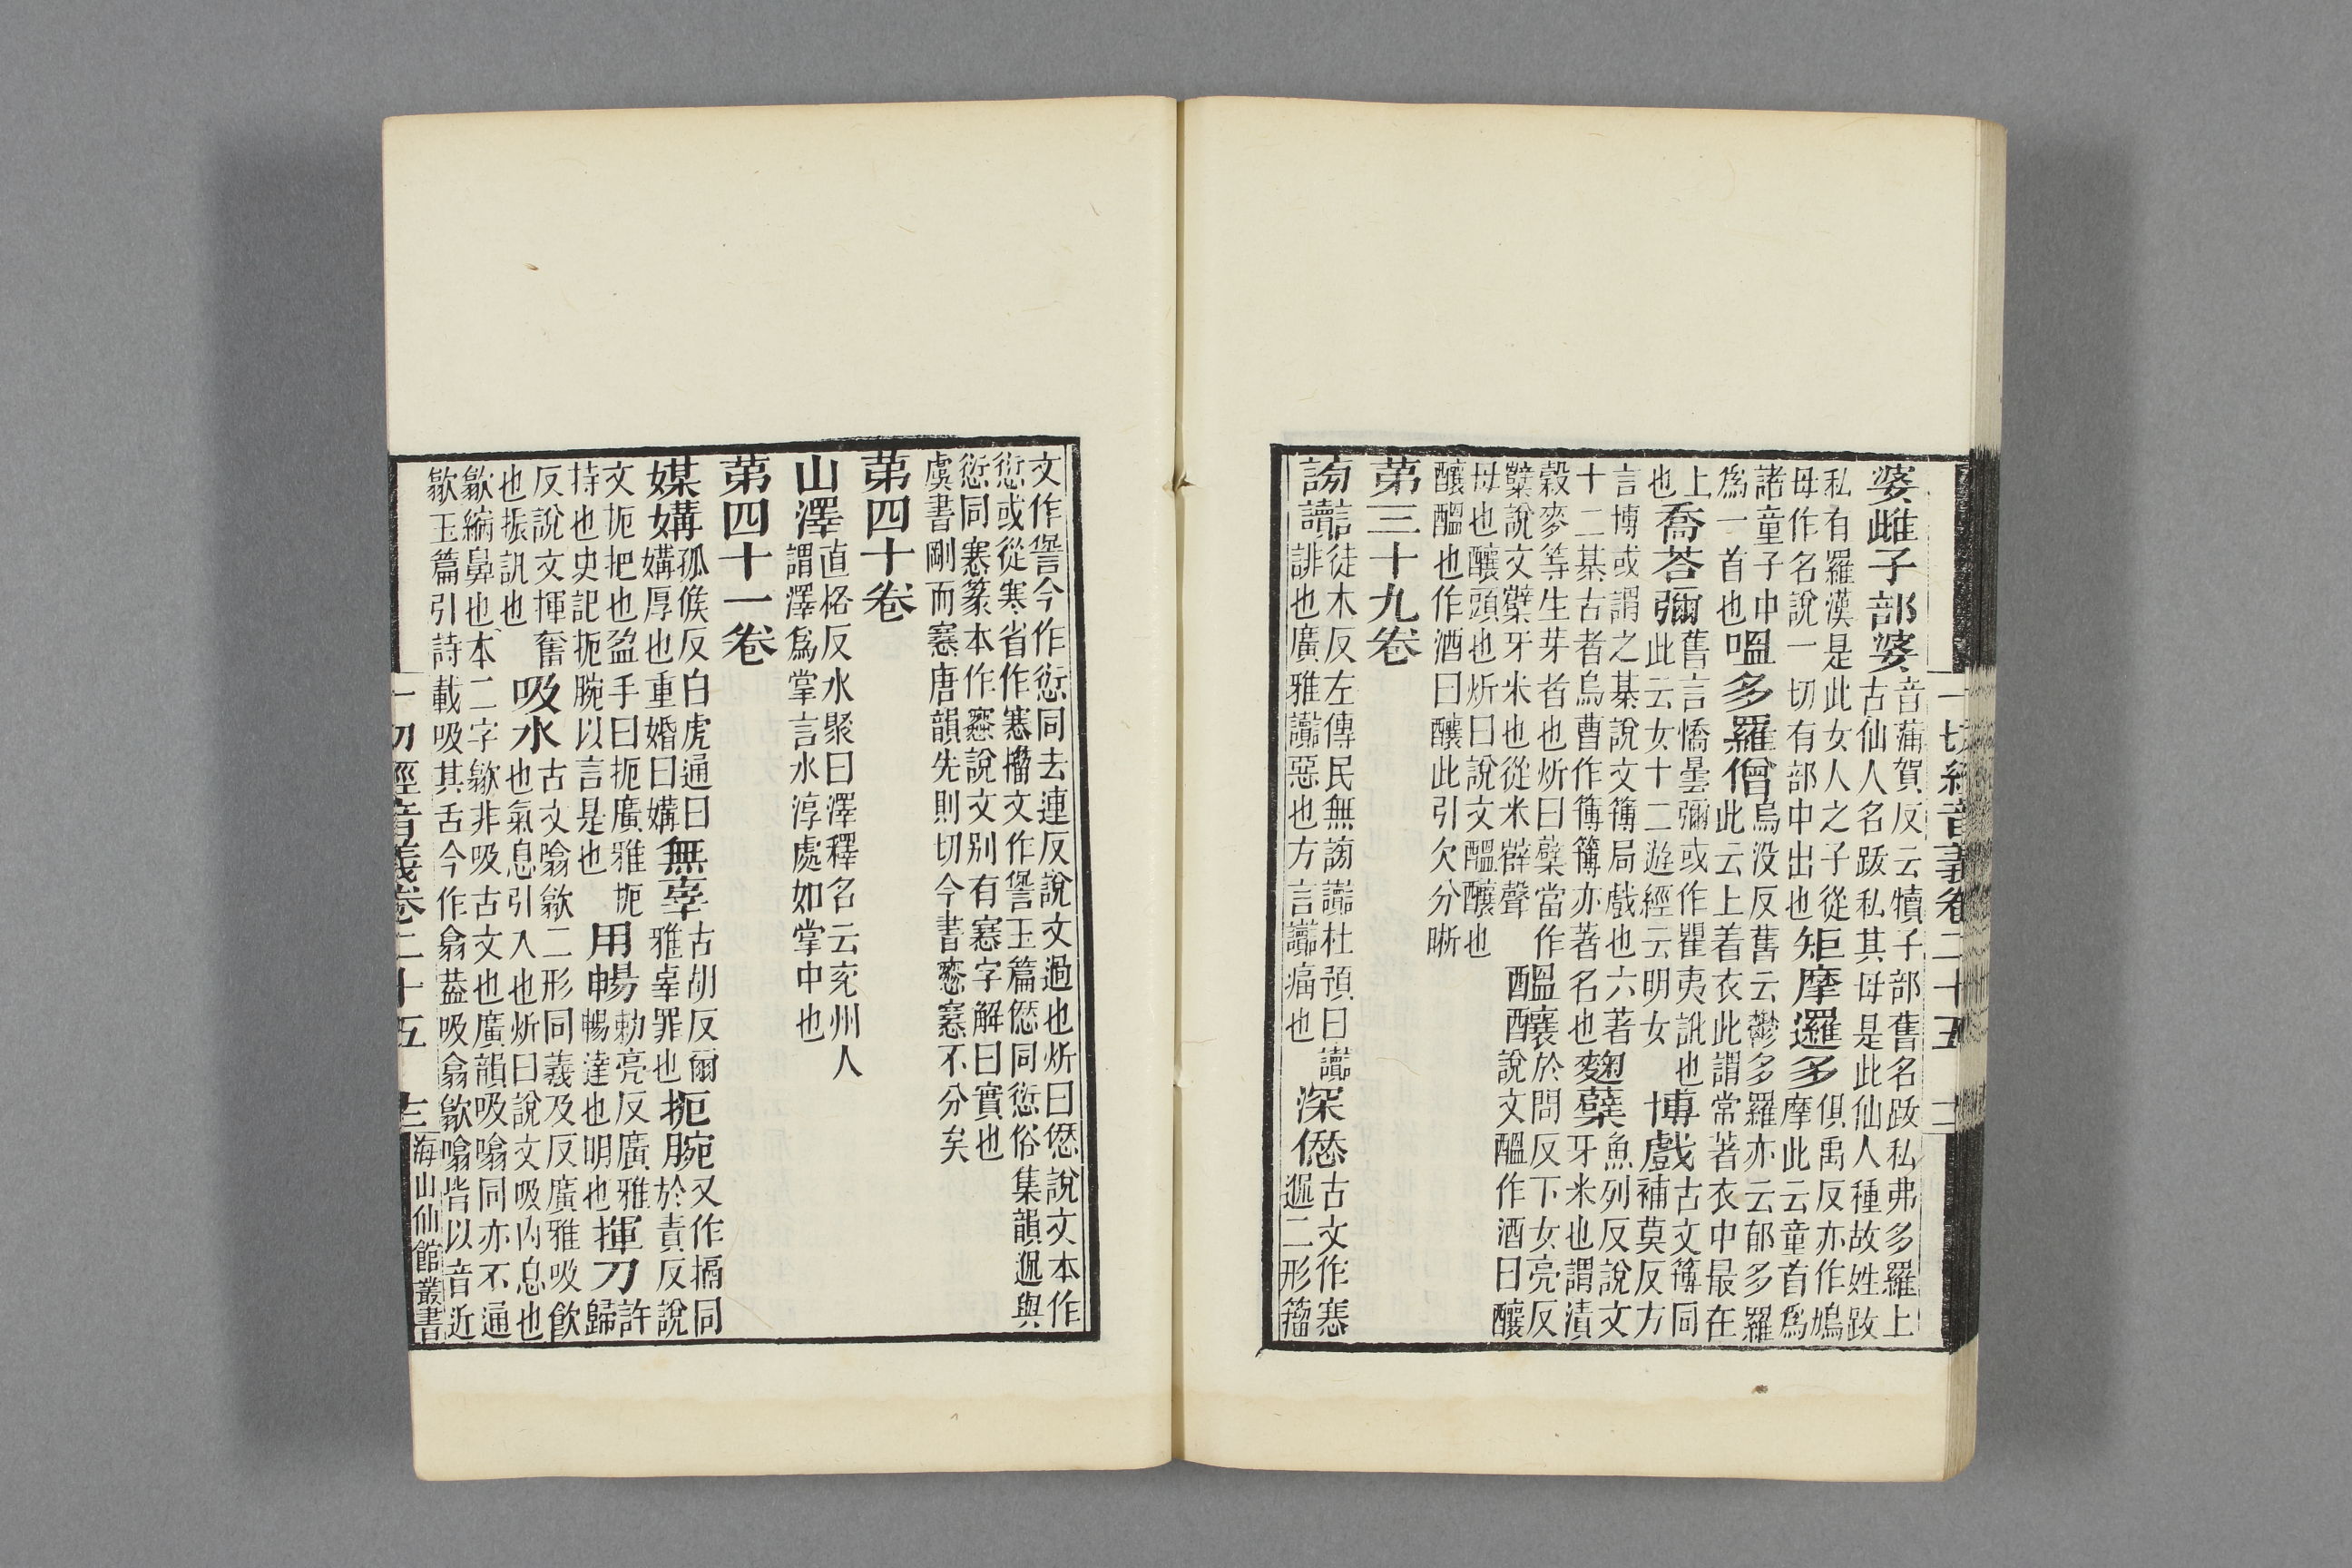 一切經音義卷二十五 二
婆雌子部婆
音蒲賀反云犢子部舊名跋私弗多羅上
古仙人名跋私其母是此仙人種故姓跋
私有羅漢是此女人之子從
母作名說一切有部中出也
矩摩邏多
俱禹反亦作鳩
摩此云童首爲
諸童子中
爲一首也
嗢多羅僧
烏没反舊云鬱多羅亦云郁多羅
此云上着衣此謂常著衣中最在
上
也
喬荅彌
舊言憍曇彌或作瞿夷訛也
此云女十二遊經云明女
博戲
古文簙同
補莫反方
言博或謂之棊說文簿局戲也六著
十二棊古者烏曹作簿簿亦著名也
麴櫱
魚列反說文
牙米也謂漬
穀麥等生芽者也炘曰櫱當作
糱說文糱牙米也從米辥聲
醞
釀
於問反下女亮反
說文醞作酒曰釀
母也釀頭也炘曰說文醞釀也
釀醞也作酒曰釀此引欠分晰
第三十九卷
謗讟
徒木反左傳民無謗讟杜預曰讟
誹也廣雅讟惡也方言讟痛也
深愆
古文作寋
𠍴二形籀
文作諐今作愆同去連反說文過也炘曰愆說文本作
愆或從寒省作寋籀文作諐玉篇愆同愆俗集韻𠍴與
愆同寋篆本作㥶說文別有寋字解曰實也
虞書剛而寋唐韻先則切今書㥶寋不分矣
第四十卷
山澤
直格反水聚曰澤釋名云兖州人
謂澤爲掌言水渟處如掌中也
第四十一卷
媒媾
孤候反白虎通曰
媾厚也重婚曰媾
無辜
古胡反爾
雅辜罪也
扼腕
又作搹同
於責反說
文扼把也盈手曰扼廣雅扼
持也史記扼腕以言是也
用暢
勅亮反廣雅
暢達也明也
揮刀
許
歸
反說文揮奮
也振訊也
吸水
古文噏歙二形同羲及反廣雅吸飮
也氣息引入也炘曰說文吸內息也
歙縮鼻也本二字歙非吸古文也廣韻吸噏同亦不通
歙玉篇引詩載吸其舌今作翕葢吸翕歙噏皆以音近
一切經音義卷二十五 三
海山仙館叢書